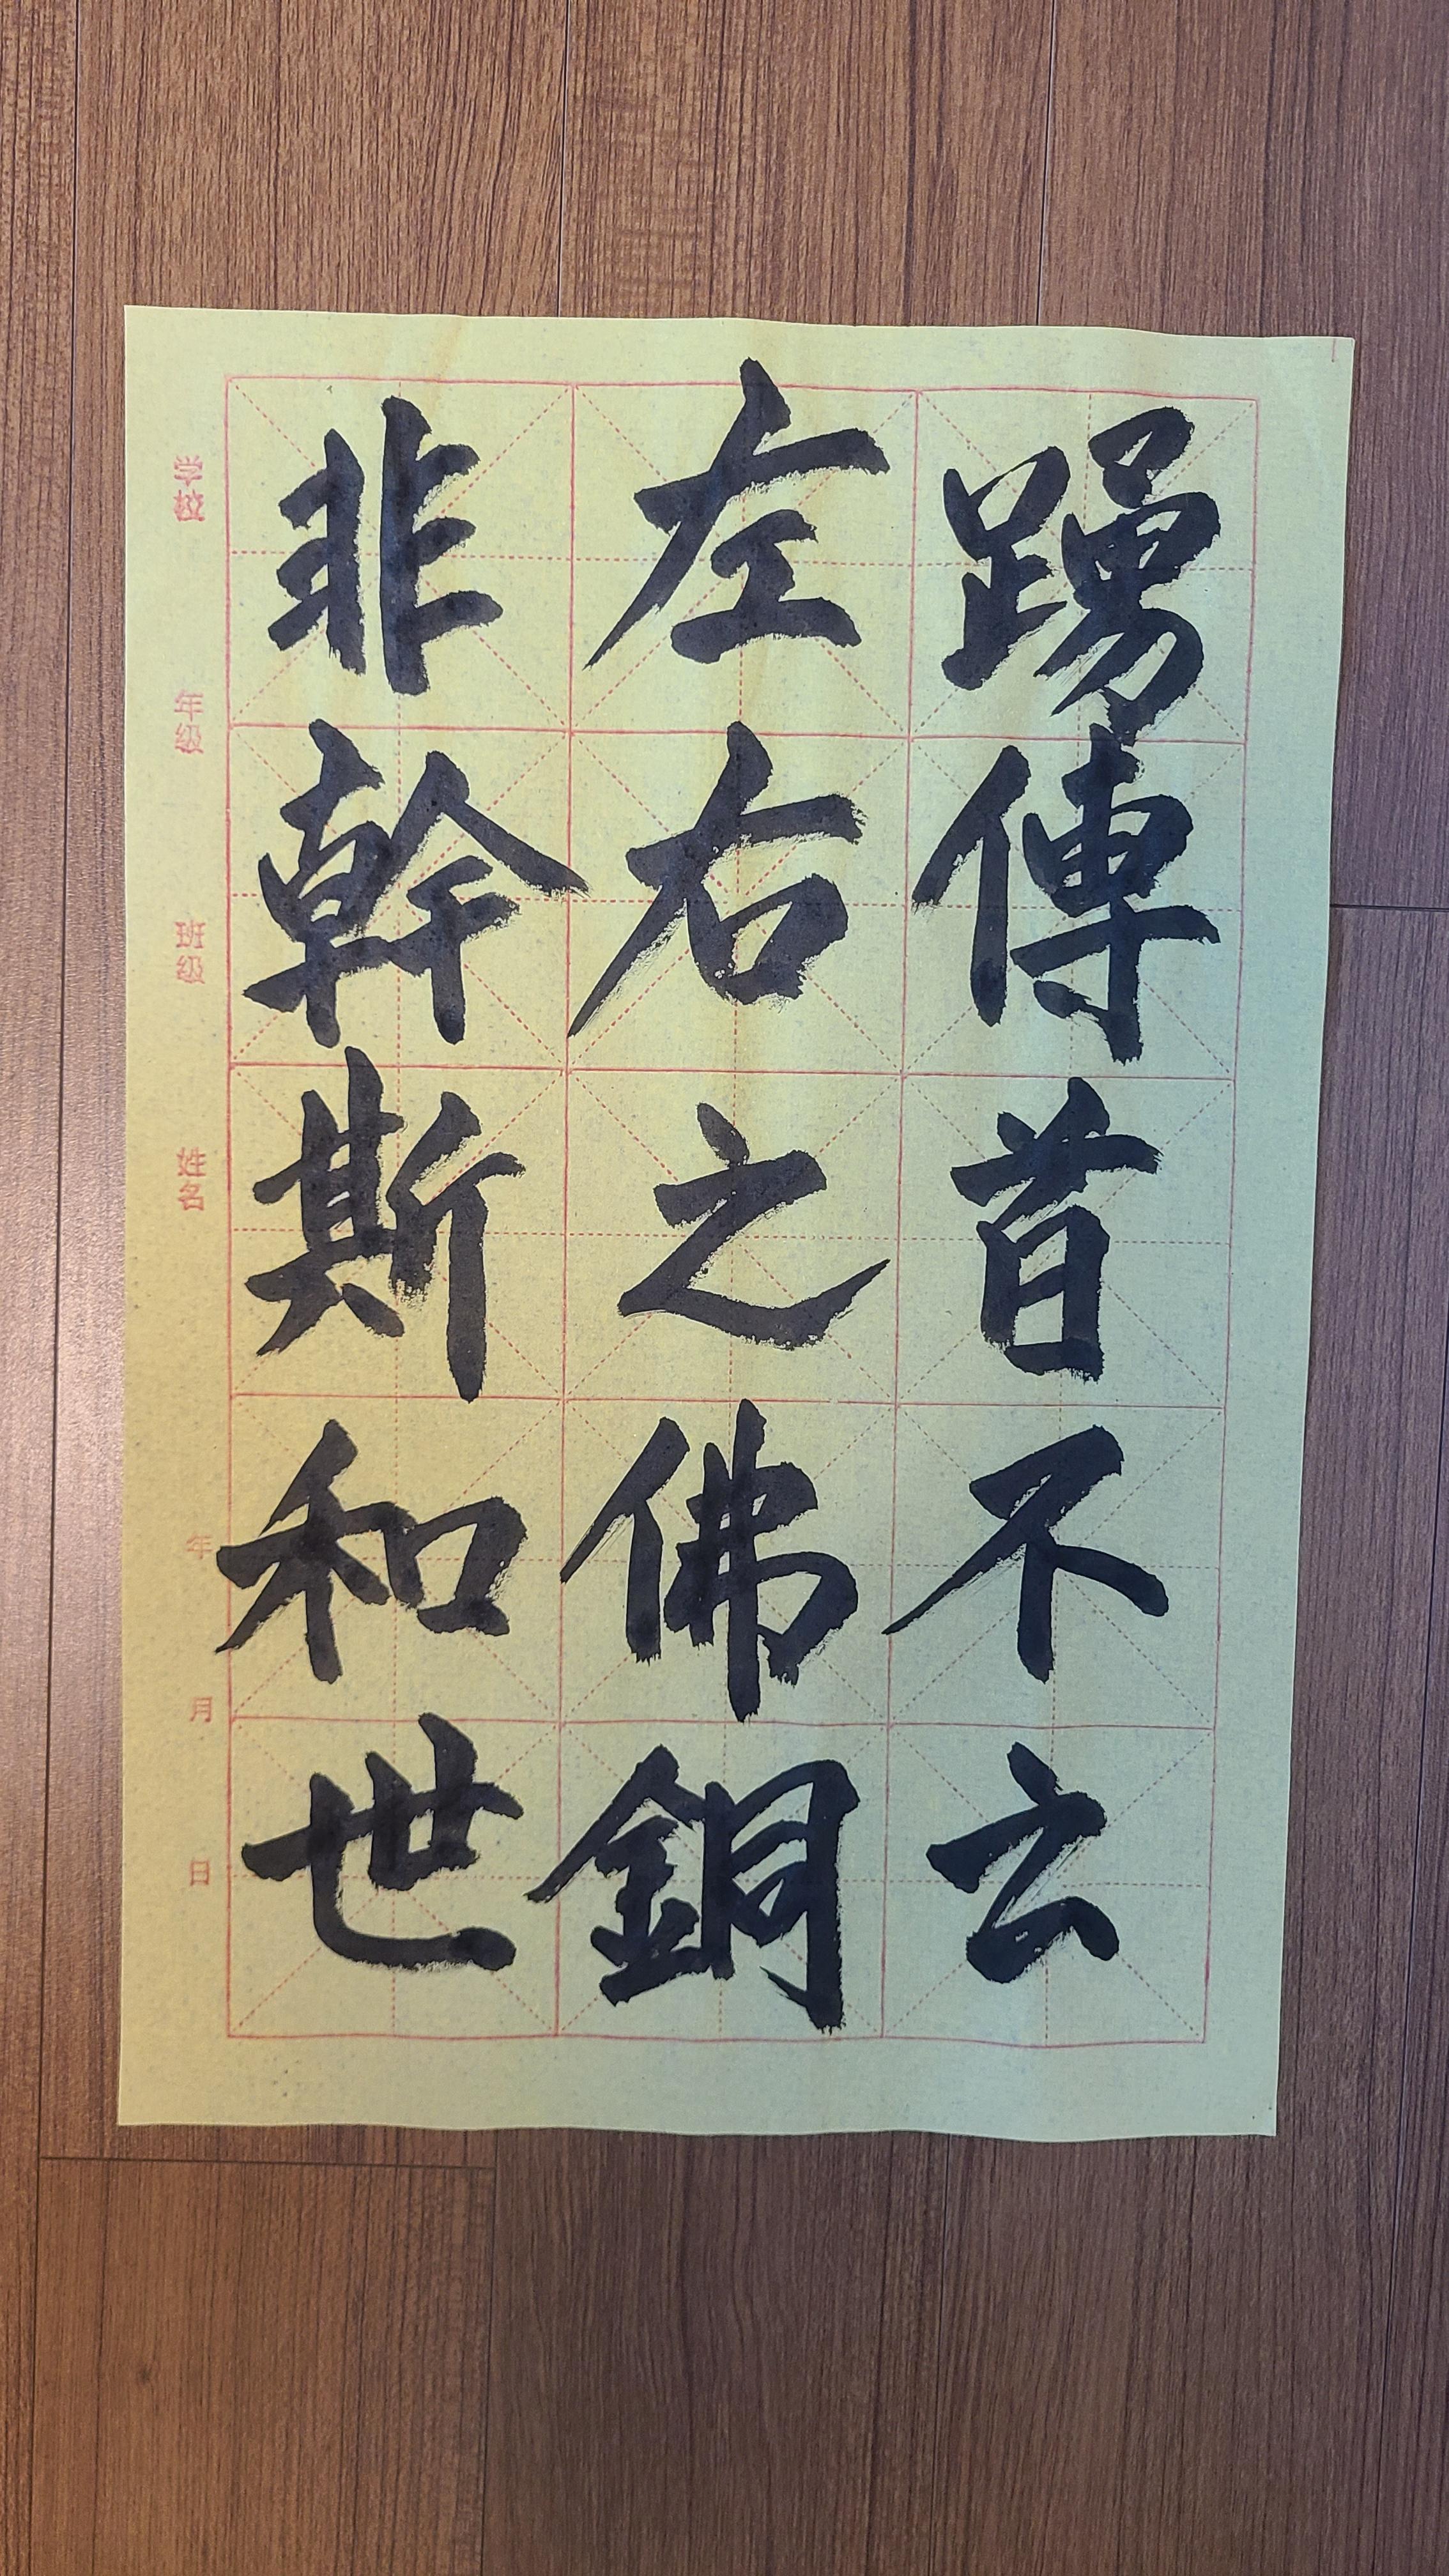 踴傳昔不云
左右之佛銅
非幹斯和世
学校
年级
班级
姓名
年
月
日